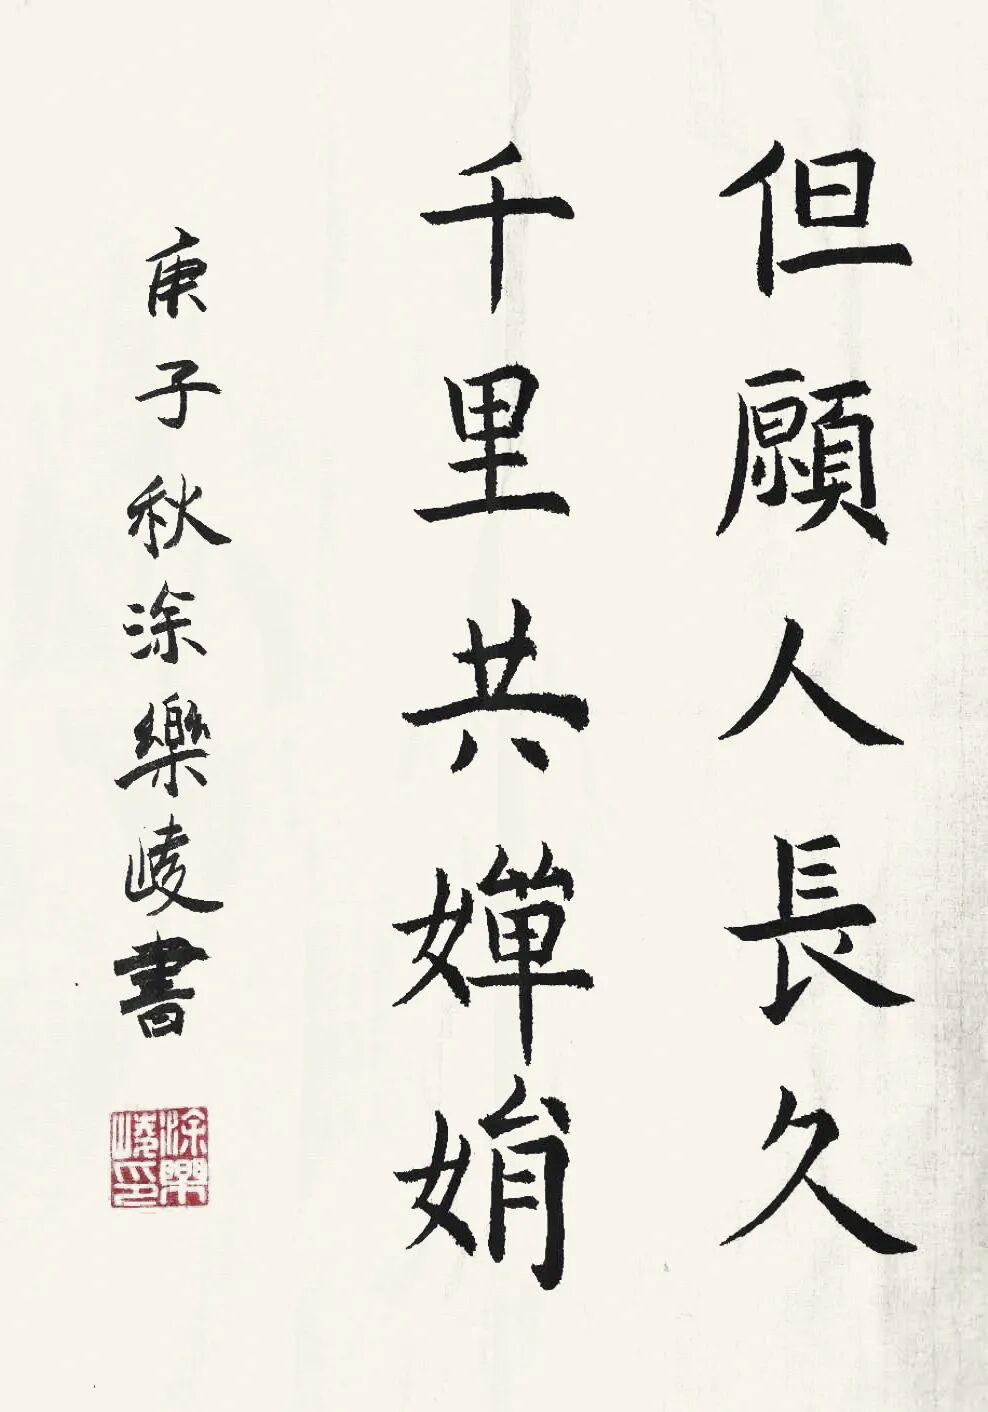 但願人長久
千里共嬋娟
庚子秋涂樂崚書
涂樂崚印